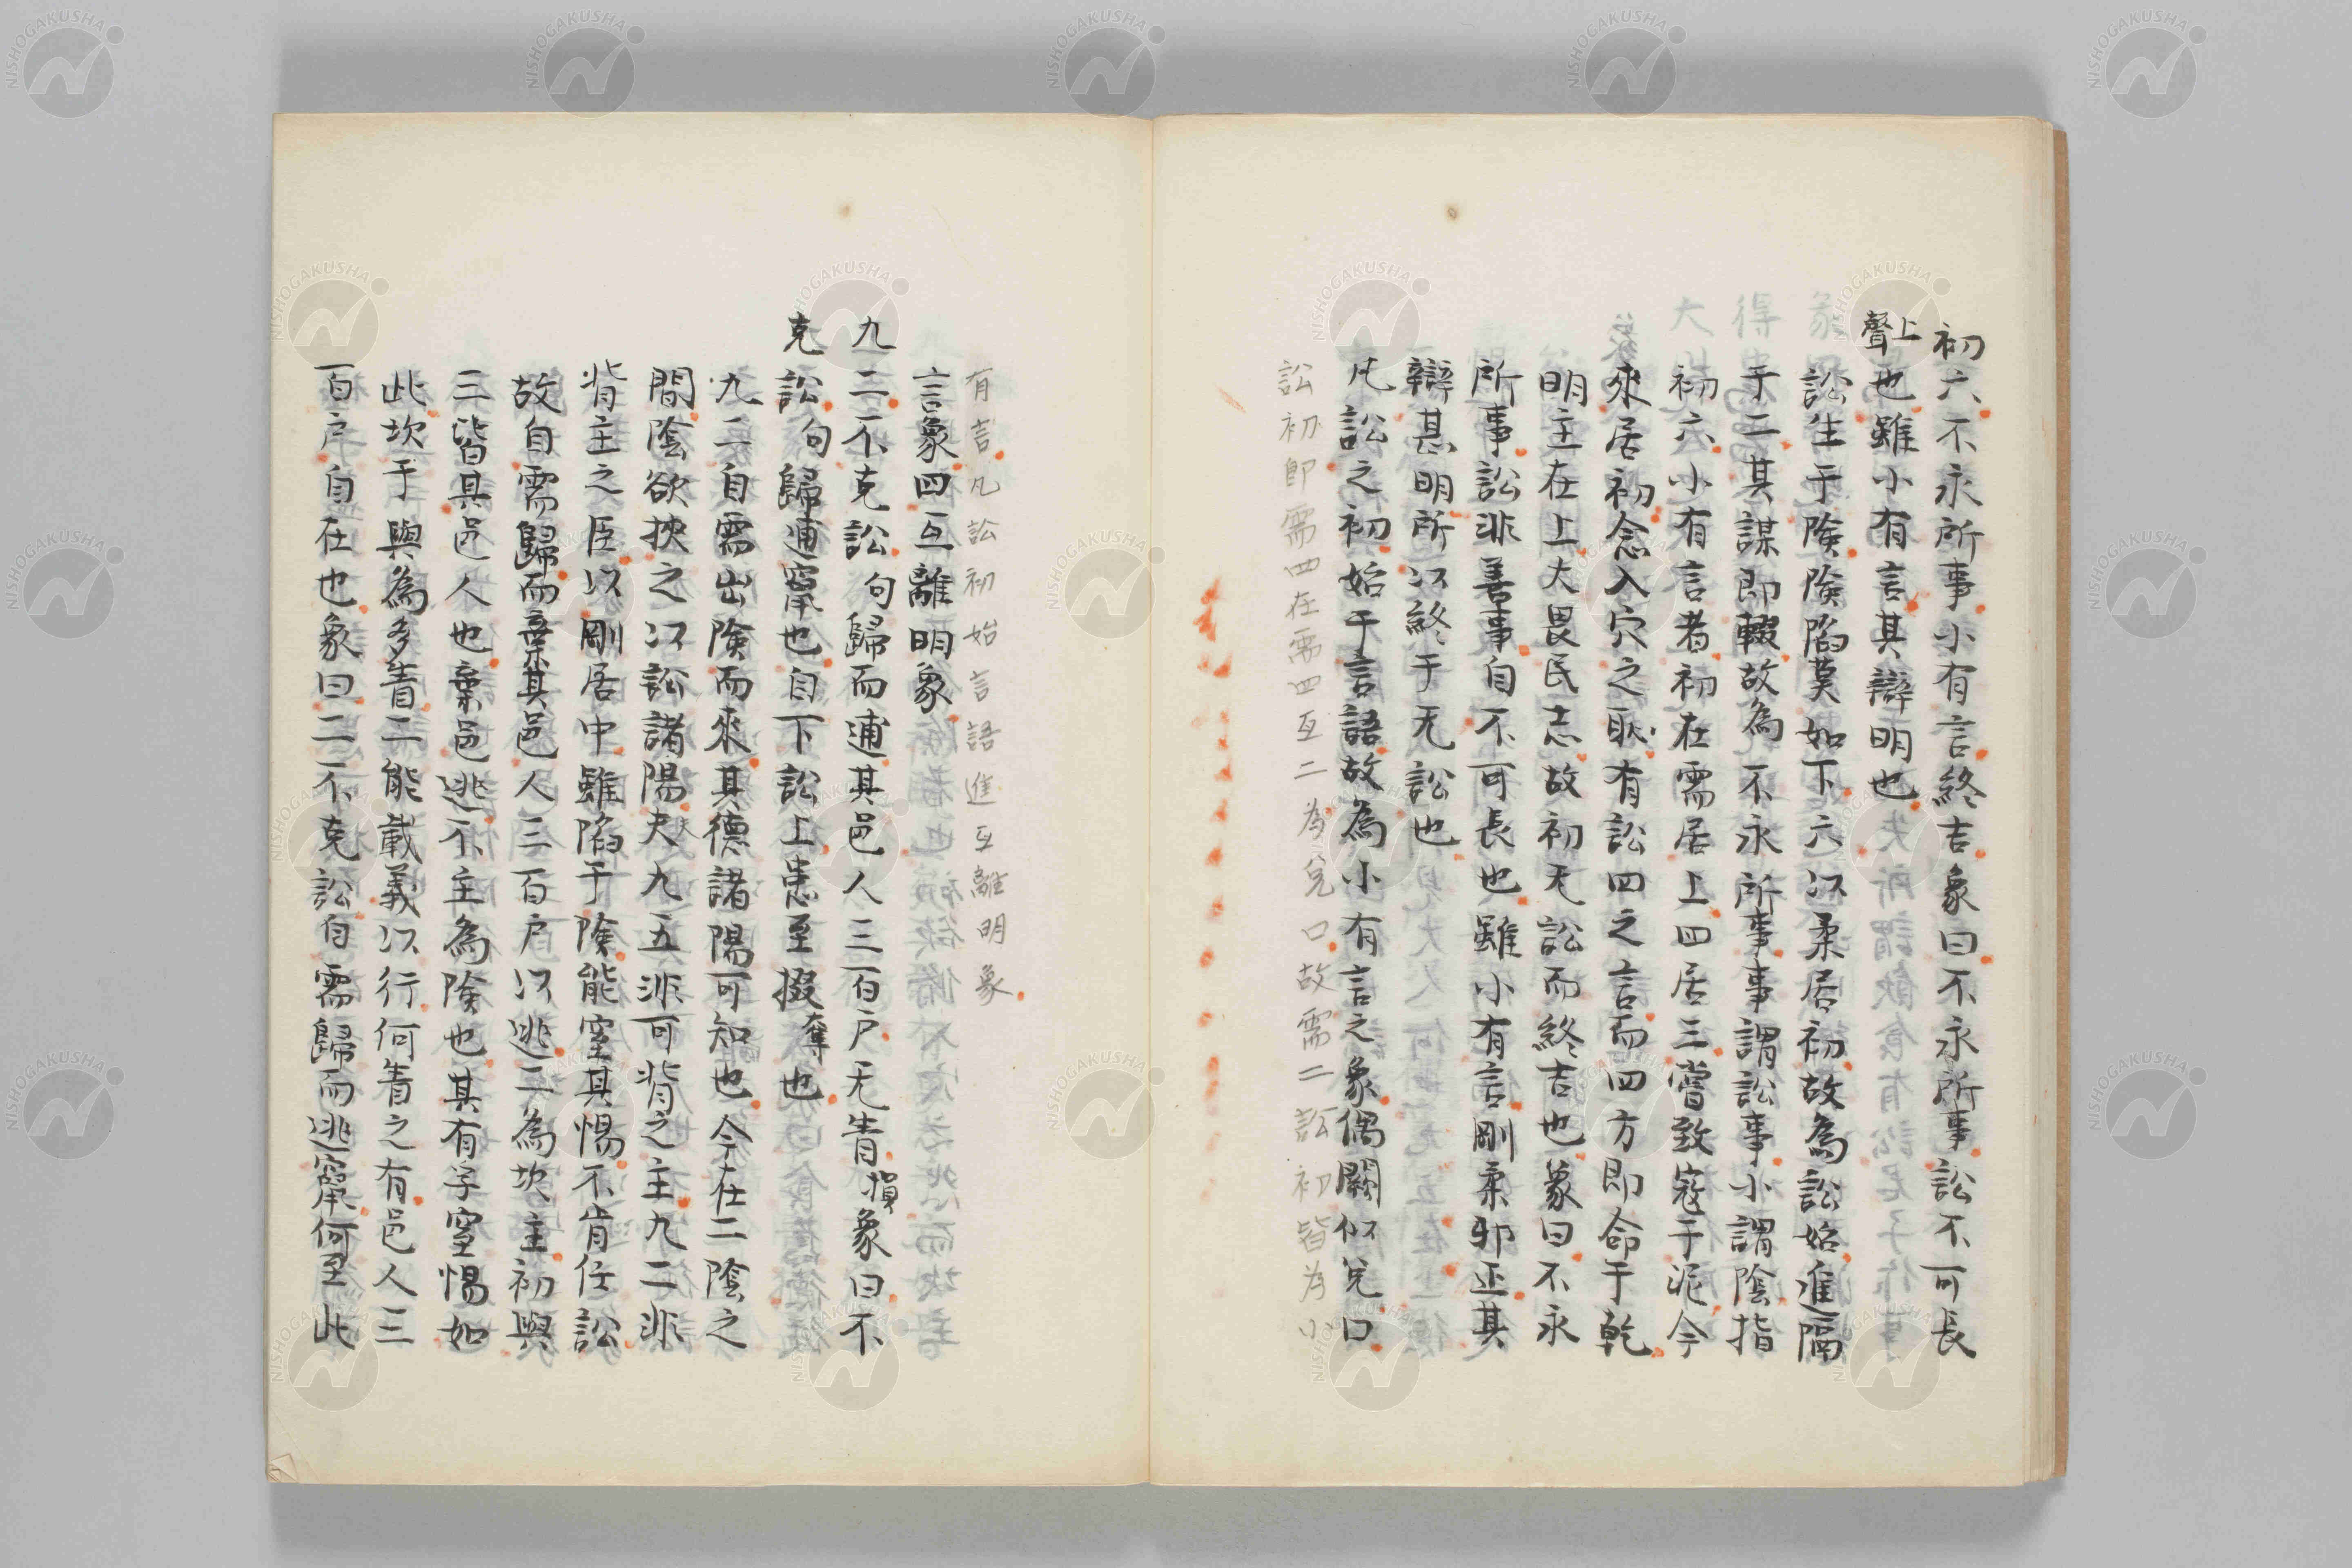 初六不永所事小有言終吉象曰不永所事訟不可長
上聲也雖小有言其辯明也
訟生于險險陷莫如下六以柔居初故為訟始進隔
于二其謀即輟故為不永所事事謂訟事小謂陰指
初六小有言者初在需居上四居三嘗致寇于泥今
來居初念入穴之耿有訟四之言而四方即命于乾
明主在上大畏民志故初无訟而終吉也象曰不永
所事訟非善事自不可長也雖小有言剛柔邪正其
辯甚明所以終于无訟也
凡訟之初始于言語故為小有言之象偶闕似兌口
訟初即需四在需四互二為兌口故需二訟初皆為小
有言凡訟初始言語進互離明象
言象四互離明象
九二不克訟句歸而逋其邑人三百戶无眚損象曰不
克訟句歸逋竄也自下訟上患至掇奪也
九二自需出險而來其德諸陽可知也今在二陰之
間陰欲挾之以訟諸陽夫九五非可背之主九二非
背主之臣以剛居中雖陷于險能窒其惕不肯任訟
故自需歸而棄其邑人三百戶以逃二為坎主初與
三皆其邑人也棄邑逃不主為險也其有孚窒惕如
此坎于輿為多眚二能載義以行何眚之有邑人三
百戶自在也象曰二不克訟自需歸而逃竄何至此